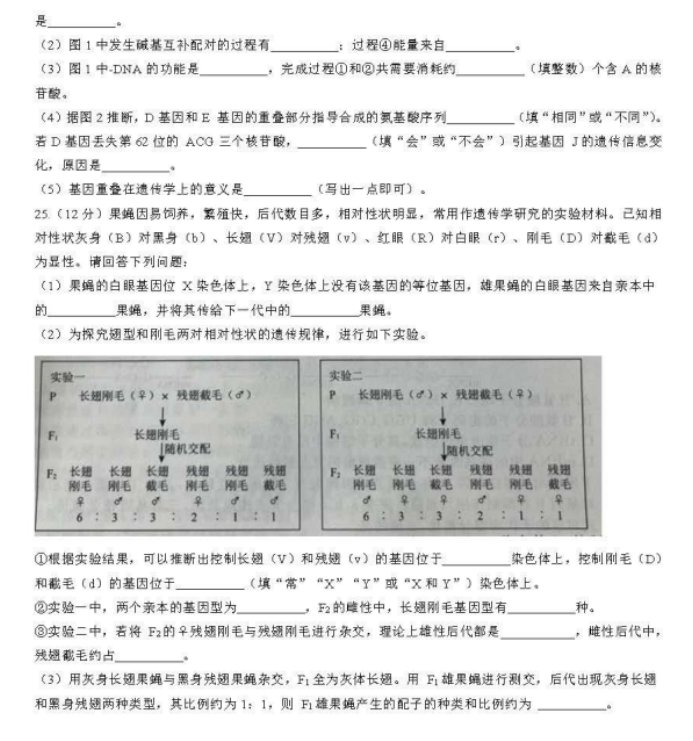 是________。
（2）图1中发生碱基互补配对的过程有________；过程④能量来自________。
（3）图1中-DNA的功能是________，完成过程①和②共需要消耗约________（填整数）个含A的核
苷酸。
（4）据图2推断，D基因和E 基因的重叠部分指导合成的氨基酸序列________（填“相同”或“不同”）。
若D基因丢失第62位的 ACG 三个核苷酸，________（填“会”或“不会”）引起基因 J的遗传信息变
化，原因是________。
（5）基因重叠在遗传学上的意义是________（写出一点即可）。
25.（12分）果蝇因易饲养，繁殖快，后代数目多，相对性状明显，常用作遗传学研究的实验材料。已知相
对性状灰身（B）对黑身（b）、长翅（V）对残翅（v）、红眼（R）对白眼（r）、刚毛（D）对截毛（d）
为显性。请回答下列问题：
（1）果蝇的白眼基因位 X染色体上，Y染色体上没有该基因的等位基因，雄果蝇的白眼基因来自亲本中
的________果蝇，并将其传给下一代中的________果蝇。
（2）为探究翅型和刚毛两对相对性状的遗传规律，进行如下实验。
实验一
P 长翅刚毛（♀）× 残翅截毛（♂）
F₁ 长翅刚毛
随机交配
F₂ 长翅 长翅 长翅 残翅 残翅 残翅
刚毛 刚毛 截毛 刚毛 刚毛 截毛
♀ ♂ ♂ ♀ ♂ ♂
6 : 3 : 3 : 2 : 1 : 1
实验二
P 长翅刚毛（♂）× 残翅截毛（♀）
F₁ 长翅刚毛
随机交配
F₂ 长翅 长翅 长翅 残翅 残翅 残翅
刚毛 刚毛 截毛 刚毛 刚毛 截毛
♂ ♀ ♀ ♂ ♀ ♀
6 : 3 : 3 : 2 : 1 : 1
①根据实验结果，可以推断出控制长翅（V）和残翅（v）的基因位于________染色体上，控制刚毛（D）
和截毛（d）的基因位于________（填“常”“X”“Y”或“X和Y”）染色体上。
②实验一中，两个亲本的基因型为________，F₂的雌性中，长翅刚毛基因型有________种。
③实验二中，若将 F₂的♀残翅刚毛与残翅刚毛进行杂交，理论上雄性后代都是________，雌性后代中，
残翅截毛约占________。
（3）用灰身长翅果蝇与黑身残翅果蝇杂交，F₁全为灰体长翅。用 F₁雄果蝇进行测交，后代出现灰身长翅
和黑身残翅两种类型，其比例约为1：1，则 F₁雄果蝇产生的配子的种类和比例约为 ________。